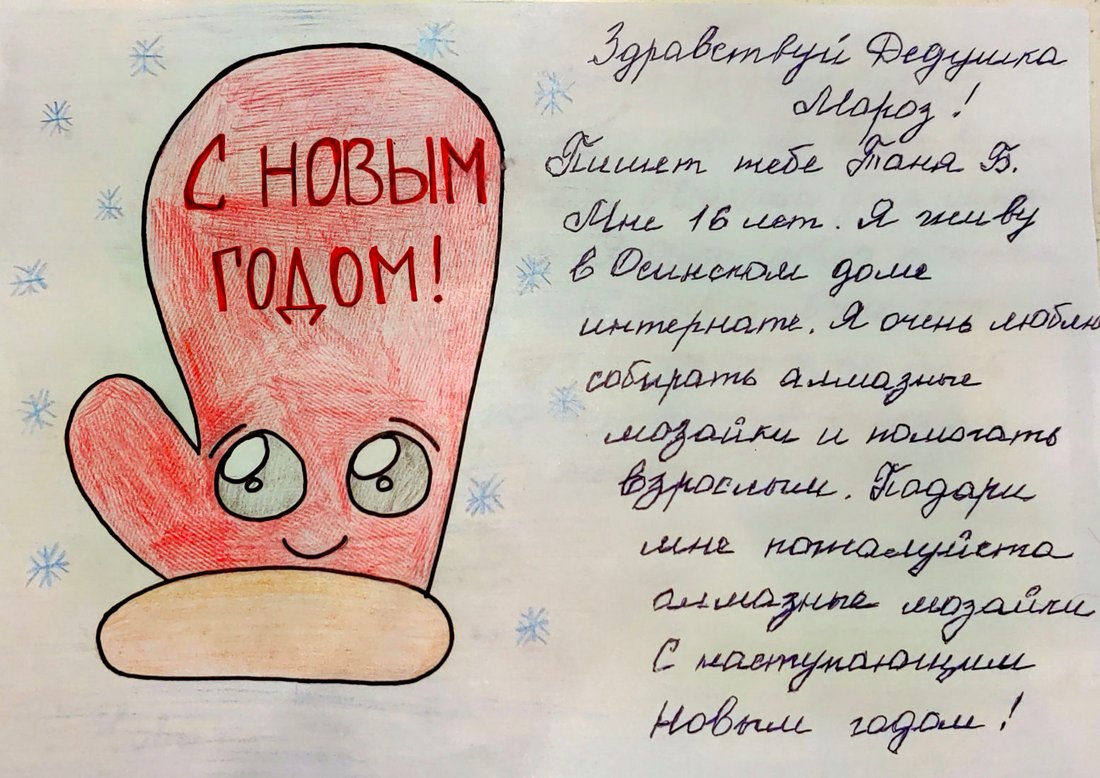 С НОВЫМ
ГОДОМ!
Здравствуй Дедушка
Мороз!
Пишет тебе Таня Б.
Мне 16 лет. Я живу
в Осинском доме
интернате. Я очень люблю
собирать алмазные
мозайки и помогать
взрослым. Подари
мне пожалуйста
алмазные мозайки
С наступающим
Новым годом!